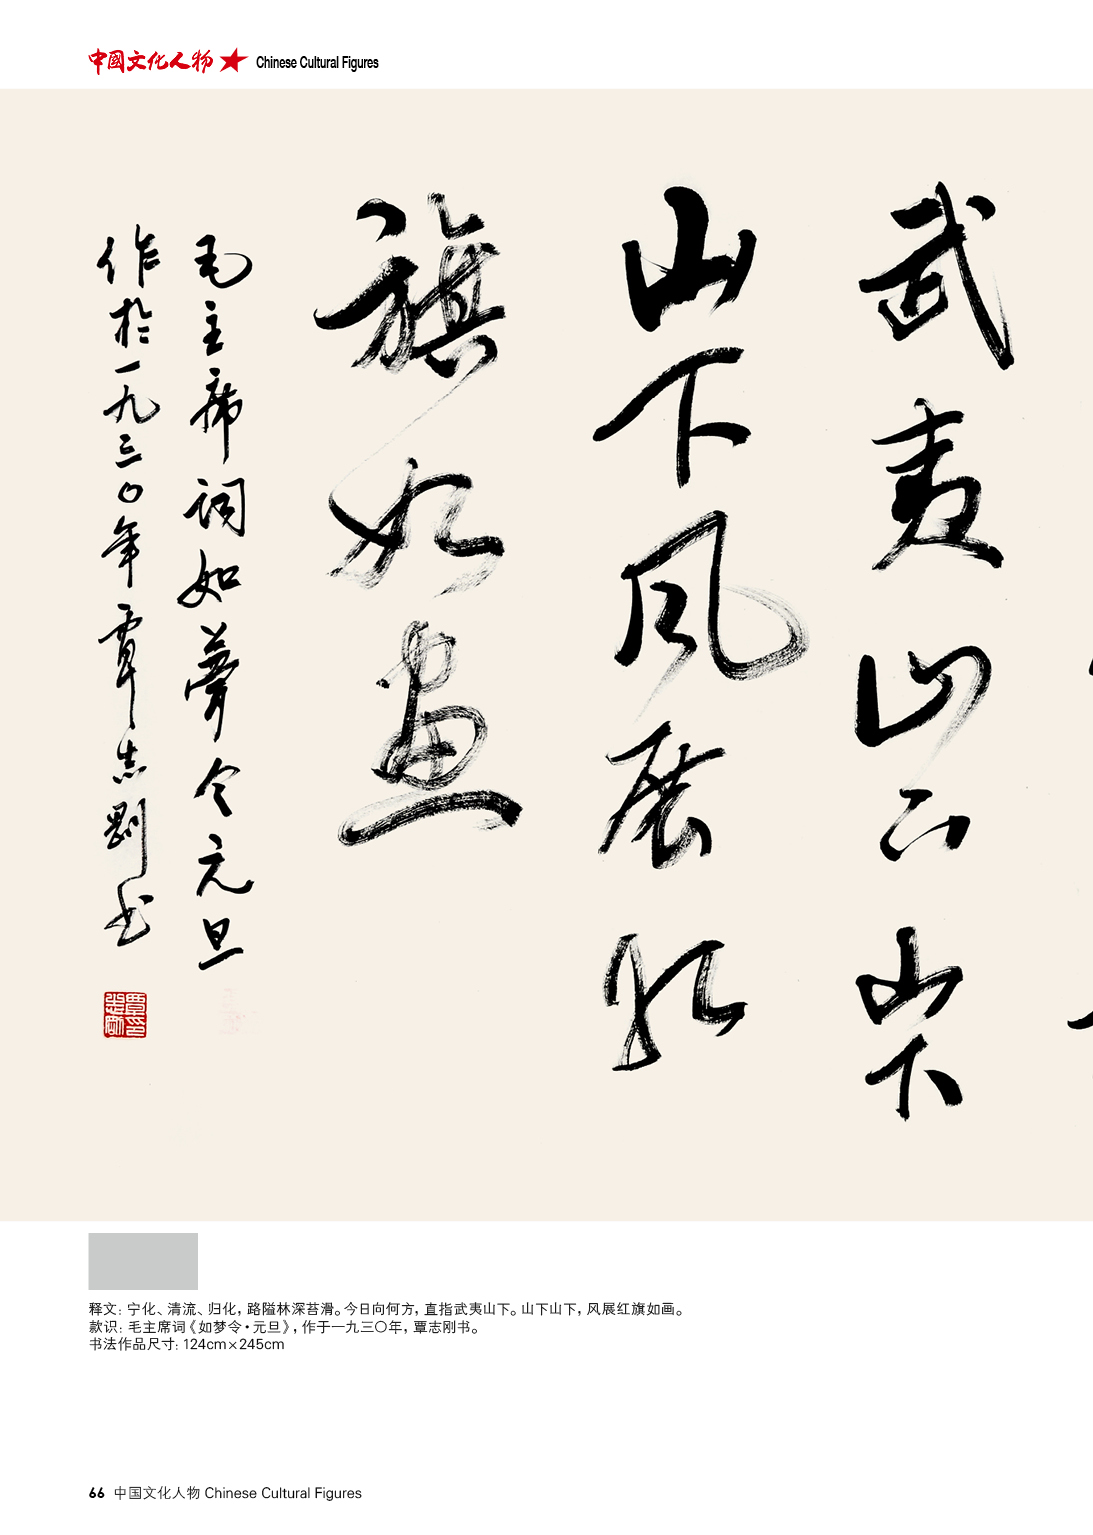 中國文化人物 Chinese Cultural Figures
武夷山下山下
山下风展红
旗如画
毛主席词如夢令元旦
作於一九三〇年覃志剛书
覃志剛印
释文：宁化、清流、归化，路隘林深苔滑。今日向何方，直指武夷山下。山下山下，风展红旗如画。
款识：毛主席词《如梦令·元旦》，作于一九三〇年，覃志刚书。
书法作品尺寸：124cm×245cm
66 中国文化人物 Chinese Cultural Figures